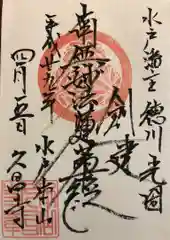 水戸藩主 徳川光圀
創建
南無妙法蓮華経
平成廿九年
水戸
四月五日
久昌寺